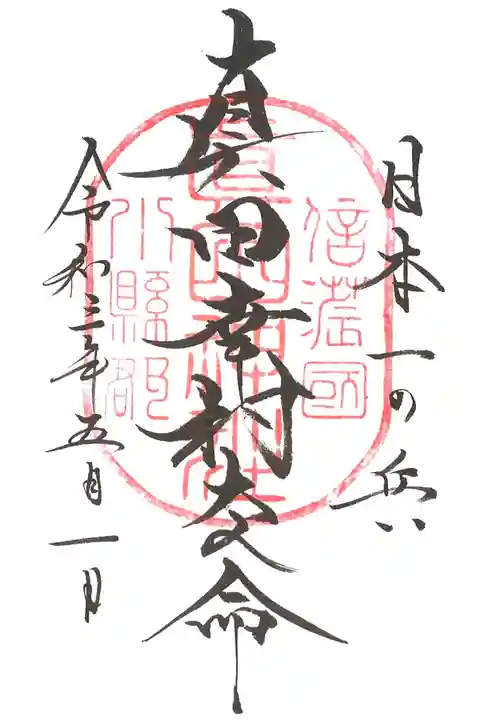 日本一の兵
真田幸村大之命
令和三年五月一日
信濃國
小縣郡